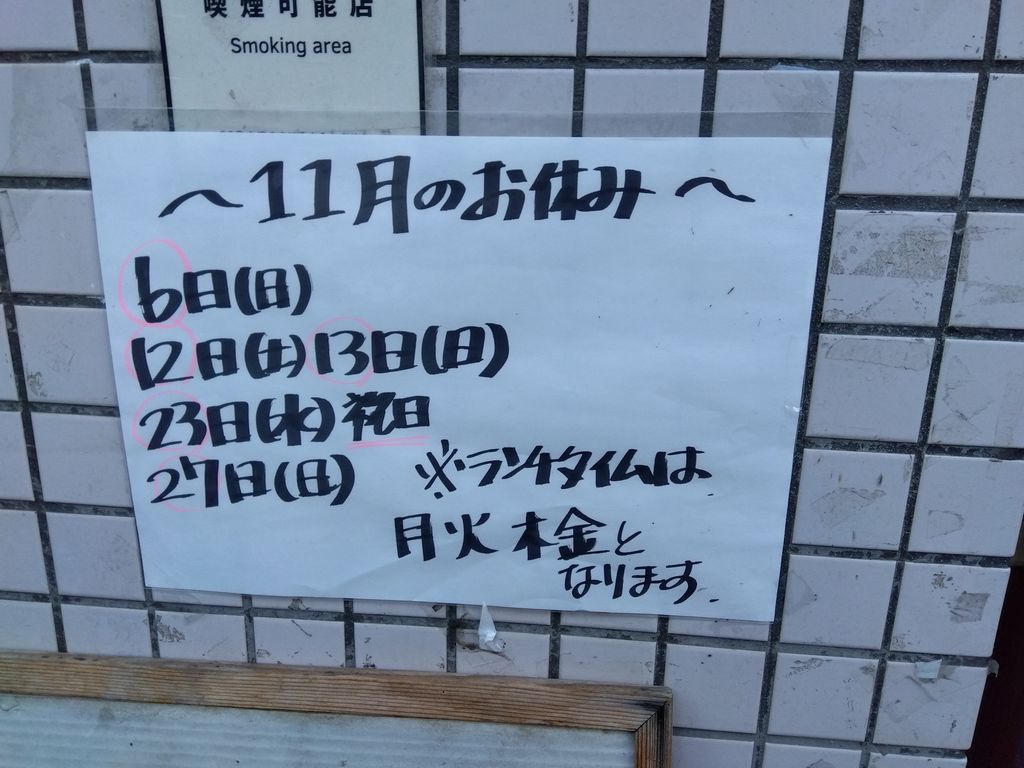 喫煙可能店
Smoking area
～11月のお休み～
6日(日)
12日(土)13日(日)
23日(水)祝日
27日(日)
※ランチタイムは
月火木金と
なります.